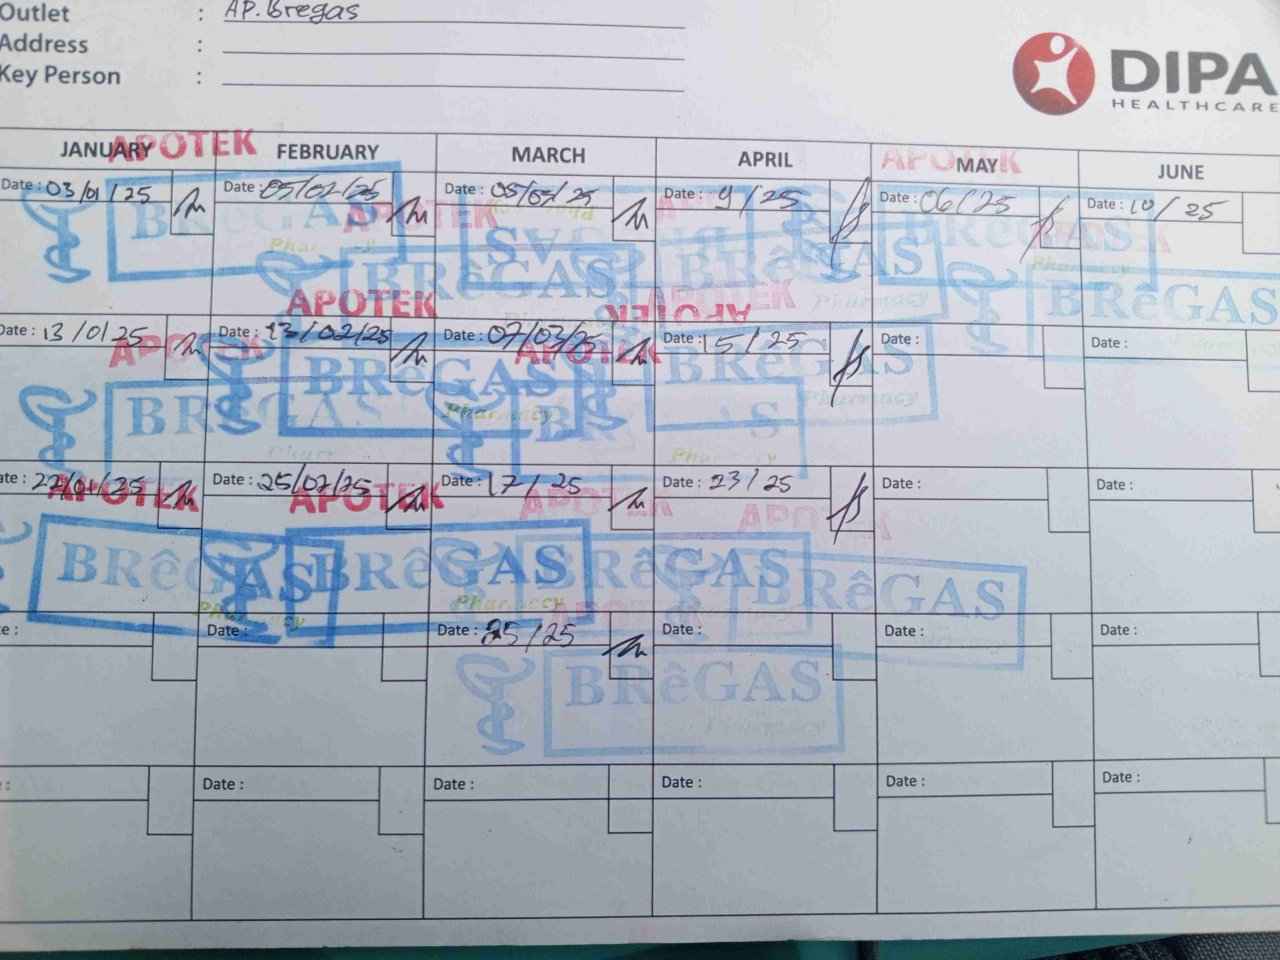 Outlet : AP. Bregas
Address :
Key Person :
DIPA
HEALTHCARE
JANUARY FEBRUARY MARCH APRIL MAY JUNE
APOTEK APOTEK
Date : 03/01/25 Date : 05/02/25 Date : 05/03/25 Date : 9/25 Date : 06/25 Date : 10/25
APOTEK
BRêGAS BRêGAS
Pharmacy
BRêGAS BRêGAS BRêGAS
Pharmacy
APOTEK APOTEK APOTEK
Date : 13/0/25 Date : 13/02/25 Date : 07/03/25 Date : 15/25 Date : Date :
APOTEK APOTEK
BRêGAS BRêGAS
Pharmacy Pharmacy
BRêGAS
Pharmacy
Date : 22/01/25 Date : 25/02/25 Date : 17/25 Date : 23/25 Date : Date :
APOTEK APOTEK APOTEK APOTEK
BRêGAS BRêGAS BRêGAS BRêGAS
Pharmacy Pharmacy
Date : Date : 25/25 Date : Date : Date :
BRêGAS
Pharmacy
Date : Date : Date : Date : Date :